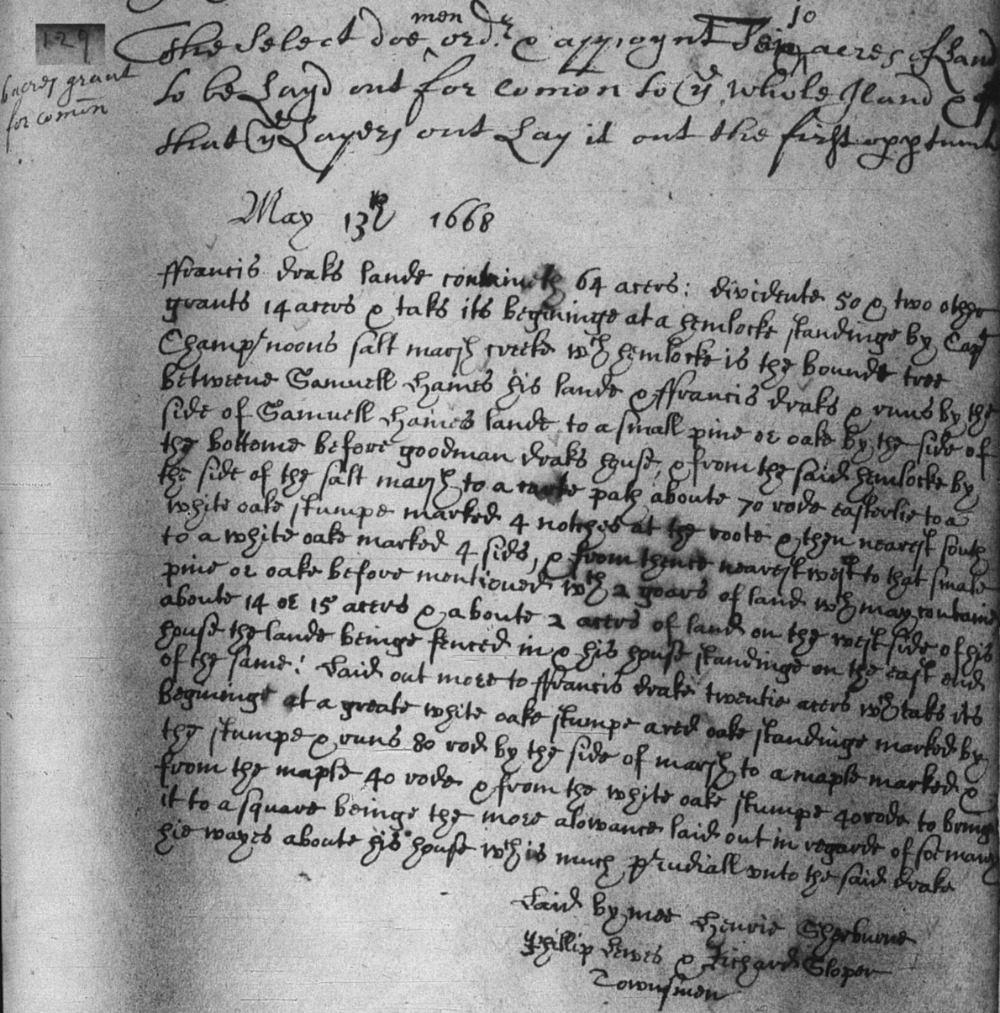 129
6 acres grant
for comōn
men 10
The Select doe ordr & appoynt acres of land
to be Layd out for Comon to ye whole Iland &
that ye Layers out Lay it out the first opptunit
May 13th 1668
ffrancis draks lande containeth 64 acers: dividente 50 & two other
grants 14 acers & taks its begininge at a hemlocke standinge by Capt
Champrnoons salt marsh creeke wch hemlocke is the bounde tree
betweene Samuell Haines his lande & ffrancis draks & runs by the
side of Samuell haines lande to a small pine or oake by the side of
the bottome before goodman draks house, & from the said hemlocke by
the side of the salt marsh to a carte path aboute 70 rode easterlie to a
white oake stumpe marked 4 notches at the roote & then nearest south
to a white oake marked 4 sids, & from thence nearest west to that smale
pine or oake before mentioned wth 2 goars of land wch may containe
aboute 14 or 15 acers & aboute 2 acers of land on the west side of his
house the lande beinge fenced in & his house standinge on the east end
of the same: Laid out more to ffrancis drake twentie acers wch taks its
begininge at a greate white oake stumpe a red oake standinge marked by
the stumpe & runs 80 rod by the side of marsh to a maple marked &
from the maple 40 rode & from the white oake stumpe 40 rode to bringe
it to a square beinge the more alowance laid out in regarde of soe many
hie wayes aboute his house wch is much prudiall unto the said drake
Laid by mee Henrie Sherburne
Phillip Lewes & Richard Sloper
Townsmen